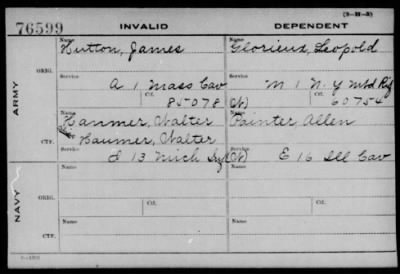 (3-38-8)
76599 INVALID DEPENDENT
Name Name
Hutton, James Glorieux, Leopold
ORIG. Service Service
A 1 Mass Cav M 1 N. Y Mtd Rif
ARMY Ctf. Ctf.
85078 (W) 60754
Name Name
Hanmer, Walter Painter, Allen
CTF. Haumer, Walter
Service Service
I 13 Mich Inf (W) E 16 Ill Cav
Name Name
ORIG.
NAVY Service Ctf. Service Ctf.
Name Name
CTF.